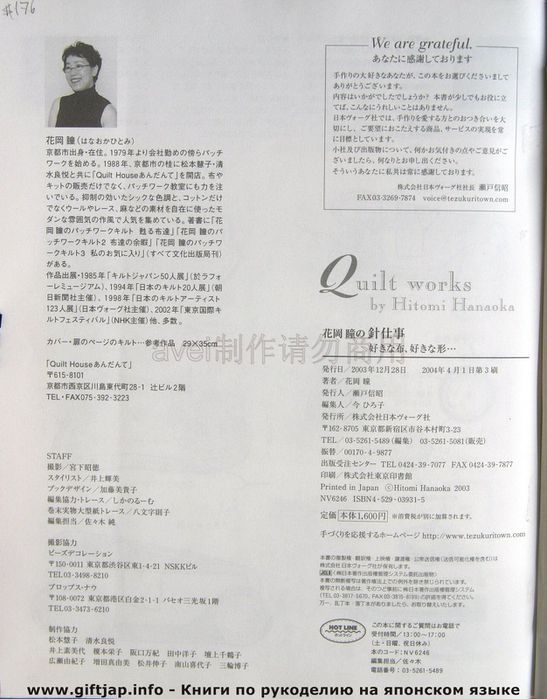 #176
花岡 瞳(はなおかひとみ)
京都市出身・在住。1979年より会社勤めの傍らパッチ
ワークを始める。1988年、京都市の桂に松本慧子・清
水良悦と共に「Quilt Houseあんだんて」を開店。布や
キットの販売だけでなく、パッチワーク教室にも力を注
いでいる。抑制の効いたシックな色調と、コットンだけ
でなくウールやレース、麻などの素材を自在に使ったモ
ダンな雰囲気の作風で人気を集めている。著書に「花
岡 瞳のパッチワークキルト 甦る布達」「花岡 瞳のパ
ッチワークキルト2 布達の余暇」「花岡 瞳のパッチワー
クキルト3 私のお気に入り」(すべて文化出版局刊)
がある。
作品出展・1985年「キルトジャパン50人展」(於ラフォ
ーレミュージアム)、1994年「日本のキルト20人展」(朝
日新聞社主催)、1998年「日本のキルトアーティスト
123人展」(日本ヴォーグ社主催)、2002年「東京国際キ
ルトフェスティバル」(NHK主催)他、多数。
カバー・扉のページのキルト…参考作品 29×35cm
「Quilt Houseあんだんて」
〒615-8101
京都市西京区川島東代町28-1 辻ビル2階
TEL・FAX075-392-3223
STAFF
撮影／宮下昭徳
スタイリスト／井上輝美
ブックデザイン／加藤美貴子
編集協力・トレース／しかのるーむ
巻末実物大型紙トレース／八文字則子
編集担当／佐々木 純
撮影協力
ビーズデコレーション
〒150-0011 東京都渋谷区東1-4-21 NSKKビル
TEL03-3498-8210
プロップス・ナウ
〒108-0072 東京都港区白金2-1-1 パセオ三光坂1階
TEL03-3473-6210
制作協力
松本慧子 清水良悦
井上素美代 榎本栄子 阪口万紀 田中洋子 壇上千鶴子
広瀬由紀子 増田真由美 松井伸子 南山喜代子 三輪博子
We are grateful.
あなたに感謝しております
手作りの大好きなあなたが、この本をお選びくださいまして
ありがとうございます。
内容はいかがでしたでしょうか? 本書が少しでもお役に立
てば、こんなにうれしいことはありません。
日本ヴォーグ社では、手作りを愛する方とのおつき合いを大
切にし、ご要望におこたえする商品、サービスの実現を常
に目標としています。
小社及び出版物について、何かお気付きの点やご意見がご
ざいましたら、何なりとお申し出ください。
そういうあなたに私共は常に感謝しております。
株式会社日本ヴォーグ社社長 瀬戸信昭
FAX03-3269-7874 voice@tezukuritown.com
Quilt works
by Hitomi Hanaoka
花岡 瞳の針仕事
好きな布、好きな形…
avei制作请勿商用
発行日／2003年12月28日 2004年4月1日第3刷
著者／花岡 瞳
発行人／瀬戸信昭
編集人／今 ひろ子
発行所／株式会社日本ヴォーグ社
〒162-8705 東京都新宿区市谷本村町3-23
TEL／03-5261-5489(編集) 03-5261-5081(販売)
振替／00170-4-9877
出版受注センター TEL 0424-39-7077 FAX 0424-39-7877
印刷／株式会社東京印書館
Printed in Japan ©Hitomi Hanaoka 2003
NV6246 ISBN4-529-03931-5
定価 本体1,600円 ※消費税が別に加算されます。
手づくりを応援するホームページ http://www.tezukuritown.com
本書の複製権・翻訳権・上映権・譲渡権・公衆送信権(送信可能化権を含む)は
株式会社 日本ヴォーグ社が保有します。
JCLS〈(株)日本著作出版権管理システム委託出版物〉
本書の無断複写は著作権法上での例外を除き禁じられています。
複写される場合は、そのつど事前に(株)日本著作出版権管理システム
(TEL 03-3817-5670, FAX 03-3815-8199)の許諾を得てください。
万一、乱丁本・落丁本がありましたら、お取り替えいたします。
HOT LINE
ホットライン
この本に関するご質問はお電話で
受付時間／13:00〜17:00
(土・日曜、祝日休み)
本のコード:NV6246
編集担当／佐々木
www.giftjap.info - Книги по рукоделию на японском языке